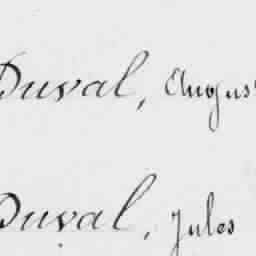 Duval, Augus
Duval, Jules